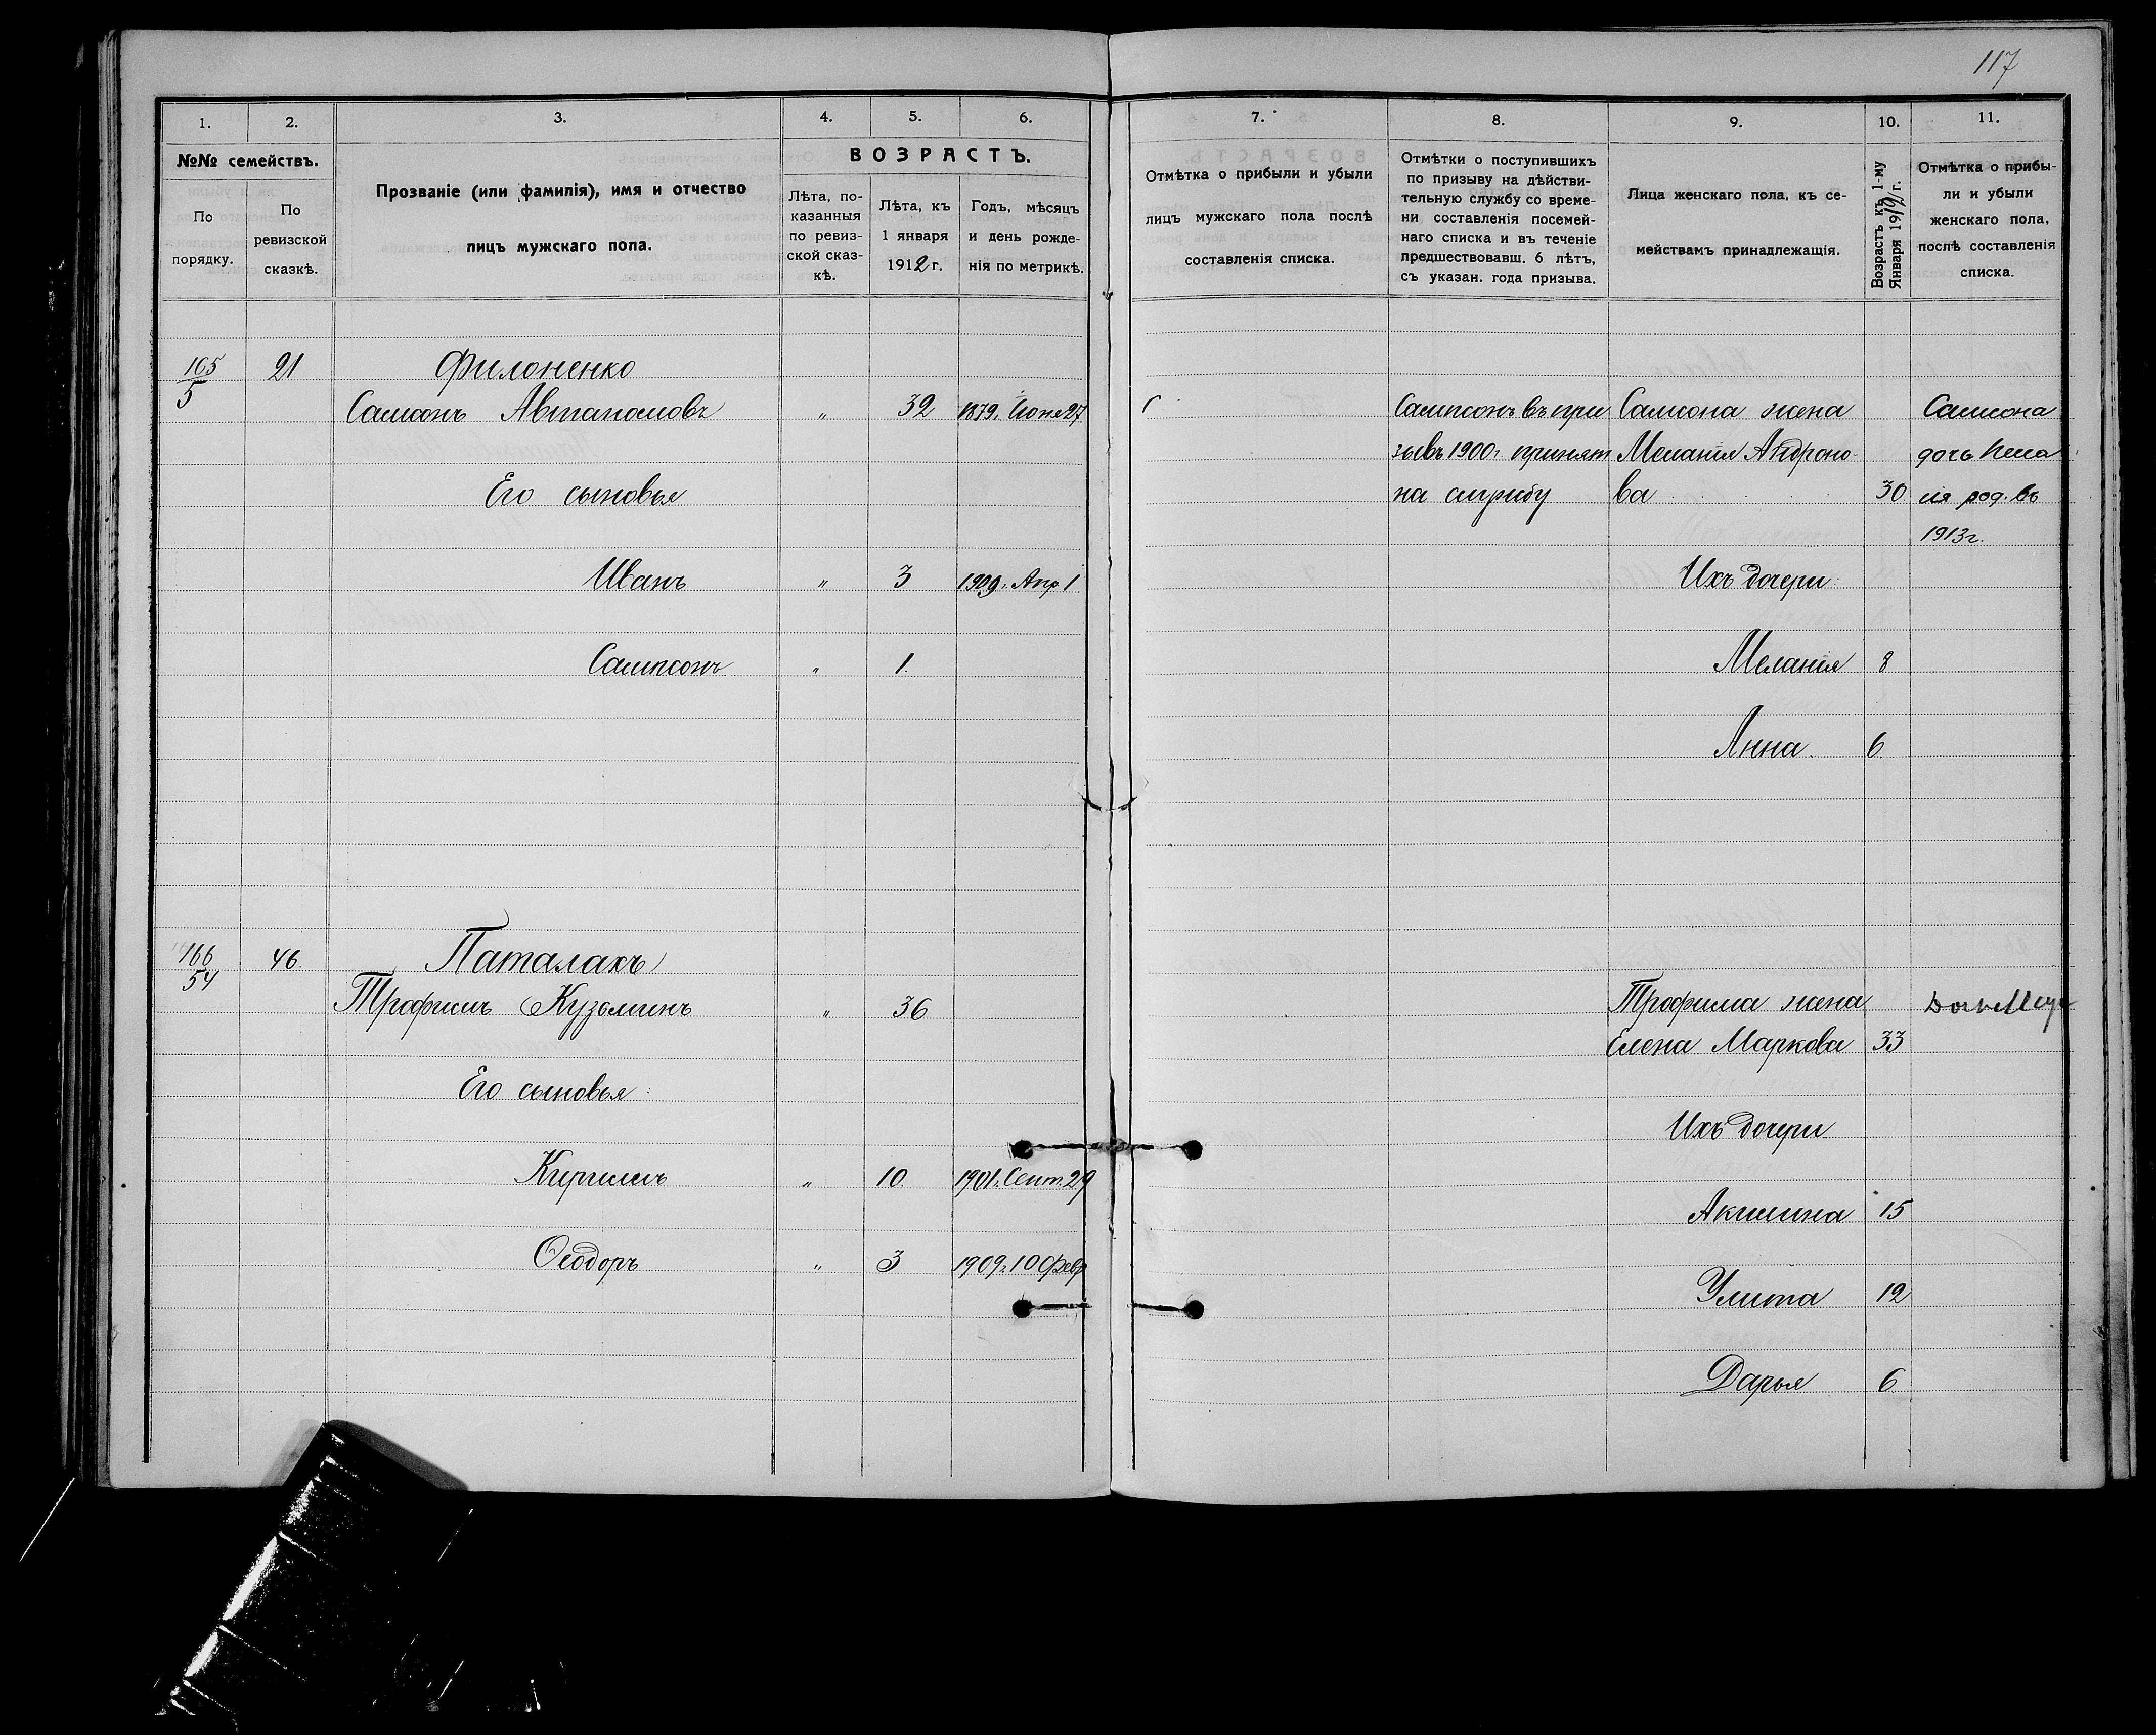 117
1. 2. 3. 4. 5. 6.
№№ семействъ.
По порядку.
По ревизской сказкѣ.
Прозваніе (или фамилія), имя и отчество
лицъ мужскаго пола.
ВОЗРАСТЪ.
Лѣта, по-
казанныя
по ревиз-
ской сказ-
кѣ.
Лѣта, къ
1 января
1912 г.
Годъ, мѣсяцъ
и день рожде-
нія по метрикѣ.
165 21 Филоненко
5
Самсонъ Автаномовъ " 32 1879. Іюня 27
Его сыновья
Иванъ " 3 1909. Апр. 1
Сампсонъ " 1.
166 46. Паталахъ
54
Трофимъ Кузьминъ " 36
Его сыновья:
Кирилъ " 10. 1901. Сент. 29
Ѳеодоръ " 3 1909. 10 Февр
7. 8. 9. 10. 11.
Отмѣтка о прибыли и убыли
лицъ мужскаго пола послѣ
составленія списка.
Отмѣтки о поступившихъ
по призыву на дѣйстви-
тельную службу со време-
ни составленія посемей-
наго списка и въ теченіе
предшествовавш. 6 лѣтъ,
съ указан. года призыва.
Лица женскаго пола, къ се-
мействамъ принадлежащія.
Возрастъ къ 1-му
Января 1912 г.
Отмѣтка о прибы-
ли и убыли
женскаго пола,
послѣ составленія
списка.
Сампсонъ въ при Самсона жена Самсона
зывъ 1900 г. принят Меланія Андроно- дочь
на службу ва 30 род. въ
1913 г.
Ихъ дочери:
Меланія 8
Анна. 6.
Трофима жена
Елена Маркова 33
Ихъ дочери.
Акилина 15
Улита 12
Дарья 6